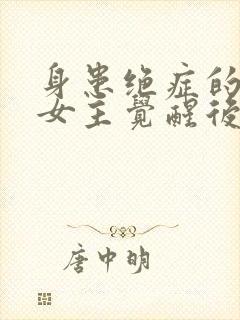 身患绝症的
女主覺醒後
唐中明